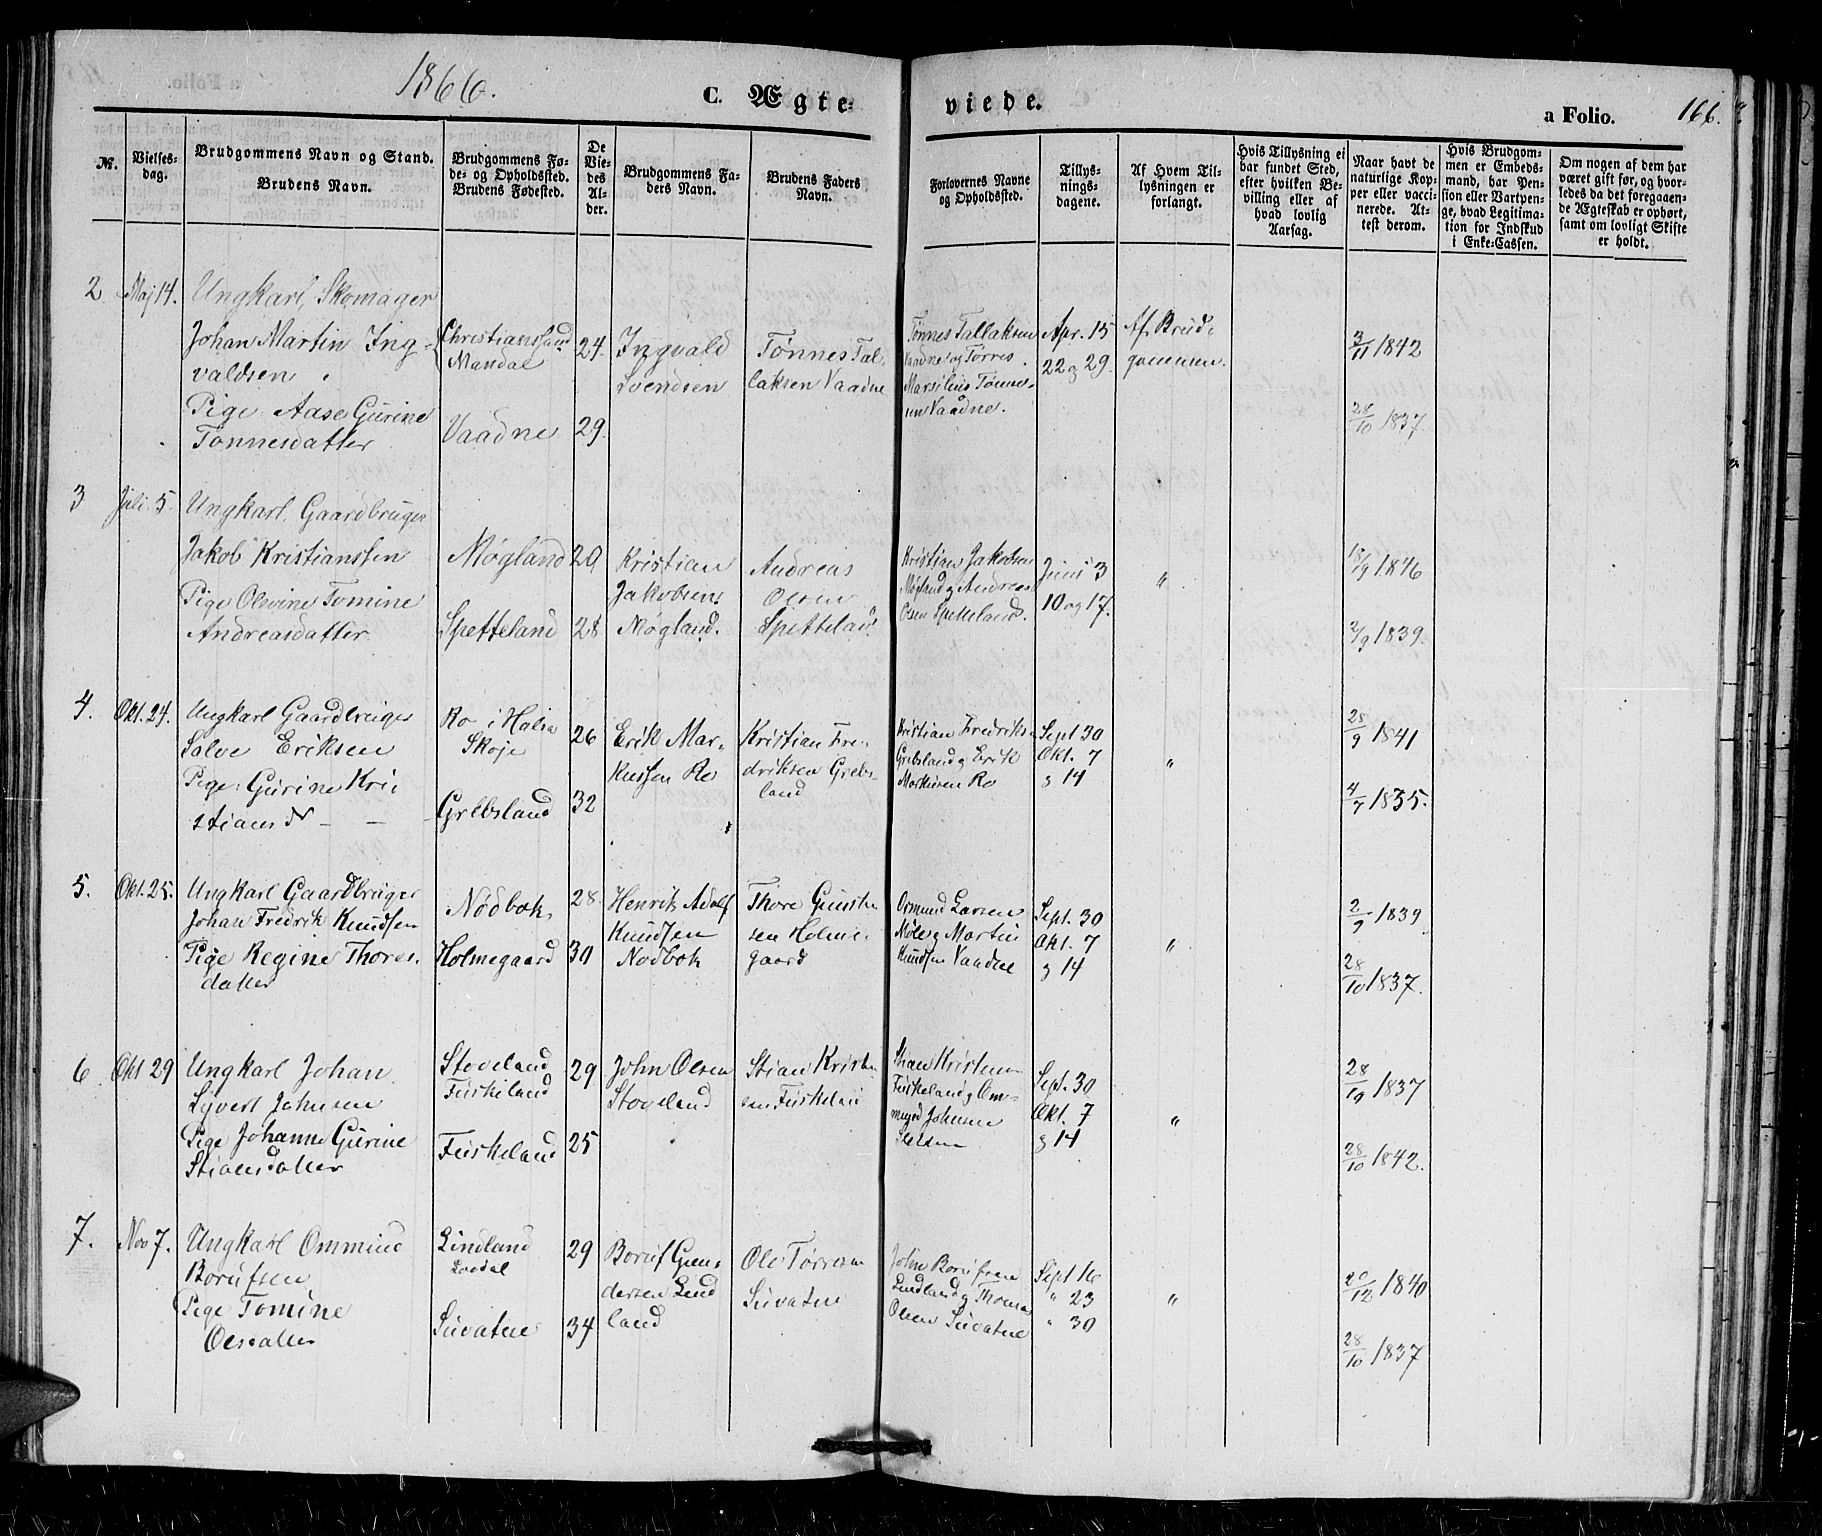 1866.
C. Ægte-
viede.
a Folio.
166.
№.
Vielses-
dag.
Brudgommens Navn og Stand.
Brudens Navn.
Brudgommens Fø-
de- og Opholdssted.
Brudens Fødested.
De
Vie-
des
Al-
der.
Brudgommens Fa-
ders Navn.
Brudens Faders
Navn.
Forlovernes Navne
og Opholdssted.
Tillys-
nings-
dagene.
Af Hvem Til-
lysningen er
forlangt.
Hvis Tillysning ei
har fundet Sted,
efter hvilken Be-
villing eller af
hvad lovlig
Aarsag.
Naar havt de
naturlige Kop-
per eller vacci-
nerede. At-
test derom.
Hvis Brudgom-
men er Embeds-
mand, har Pen-
sion eller Vartpen-
ge, hvad Legitima-
tion for Indskud
i Enke-Cassen.
Om nogen af dem har
været gift før, og hvor-
ledes da det foregaaen-
de Ægteskab er ophørt,
samt om lovligt Skifte
er holdt.
2
Maj 14.
Ungkarl, Skomager
Johan Martin Ing-
valdsen
Pige: Aase Gurine
Tønnesdatter
Christianssand
Mandal
Vaadne
24.
29.
Ingvald
Svendsen
Tønnes Tal-
laksen Vaadne
Tønnes Tallaksen
Vaadne og Tørres
Marselius Tønne-
sen Vaadne.
Apr. 15
22 og 29.
Af Brud-
gommen.
3/11 1842
28/10 1837.
3
Juli 5.
Ungkarl, Gaardbruger
Jakob Kristianssen
Pige Olevine Tomine
Andreasdatter
Møgland
Spetteland
20
28
Kristian
Jakobsen
Møgland.
Andreas
Olsen
Spetteland
Kristian Jakobsen
Møgland og Andreas
Olsen Spetteland.
Juni 3
10 og 17.
"
18/9 1846
2/9 1839.
4.
Okt. 24.
Ungkarl Gaardbruger
Salve Eriksen
Pige: Gurine Kri-
stiansd - -
Ro i Halsa
Skoje
Grebsland
26
32
Erik Mar-
kussen Ro
Kristian Fre-
driksen Grebs-
land
Kristian Fredriksen
Grebsland og Erik
Markusen Ro
Sept 30
Okt. 7
og 14
"
28/9 1841
4/7 1835.
5.
Okt. 25.
Ungkarl Gaardbruger
Johan Fredrik Knudsen
Pige Regine Thores-
datter
Nødbok
Holmegaard
28
30
Henrik Adolf
Knudsen
Nødbok
Thore Gunste
sen Holme-
gaard
Ormund Larsen
Møle og Martin
Knudsen Vaadne
Sept. 30
Okt. 7
og 14
"
2/9 1839
28/10 1837.
6
Okt 29
Ungkarl Johan
Syvert Johnsen
Pige Johanne Gurine
Stiansdatter
Stoveland
Fuskeland
Fuskeland
29
25
John Olsen
Stoveland
Stian Kristen
sen Fuskeland
Stian Kristensen
Fuskeland og Om-
mund Johnsen
Sept. 30
Okt. 7
og 14
"
28/10 1837
28/10 1842.
7.
Nov 7.
Ungkarl Ommund
Borufsen
Pige Tomine
Olsdatter
Lindland
Suvatne
29
34
Boruf Gun-
dersen Lind
land
Ole Tørresen
Suvatne
John Borufsen
Lindland og Thomas
Olsen Suvatne
Sept 16
" 23
" 30
"
20/12 1840
28/10 1837